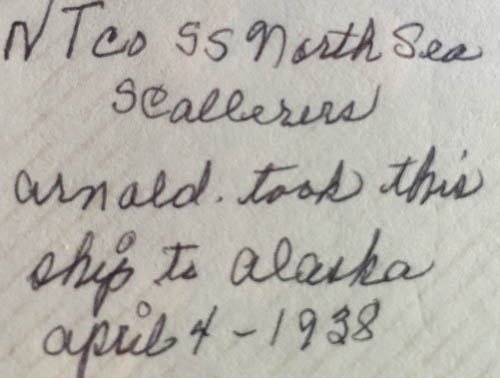 NTCo SS North Sea
arnold. took this
ship to alaska
april 4 - 1938